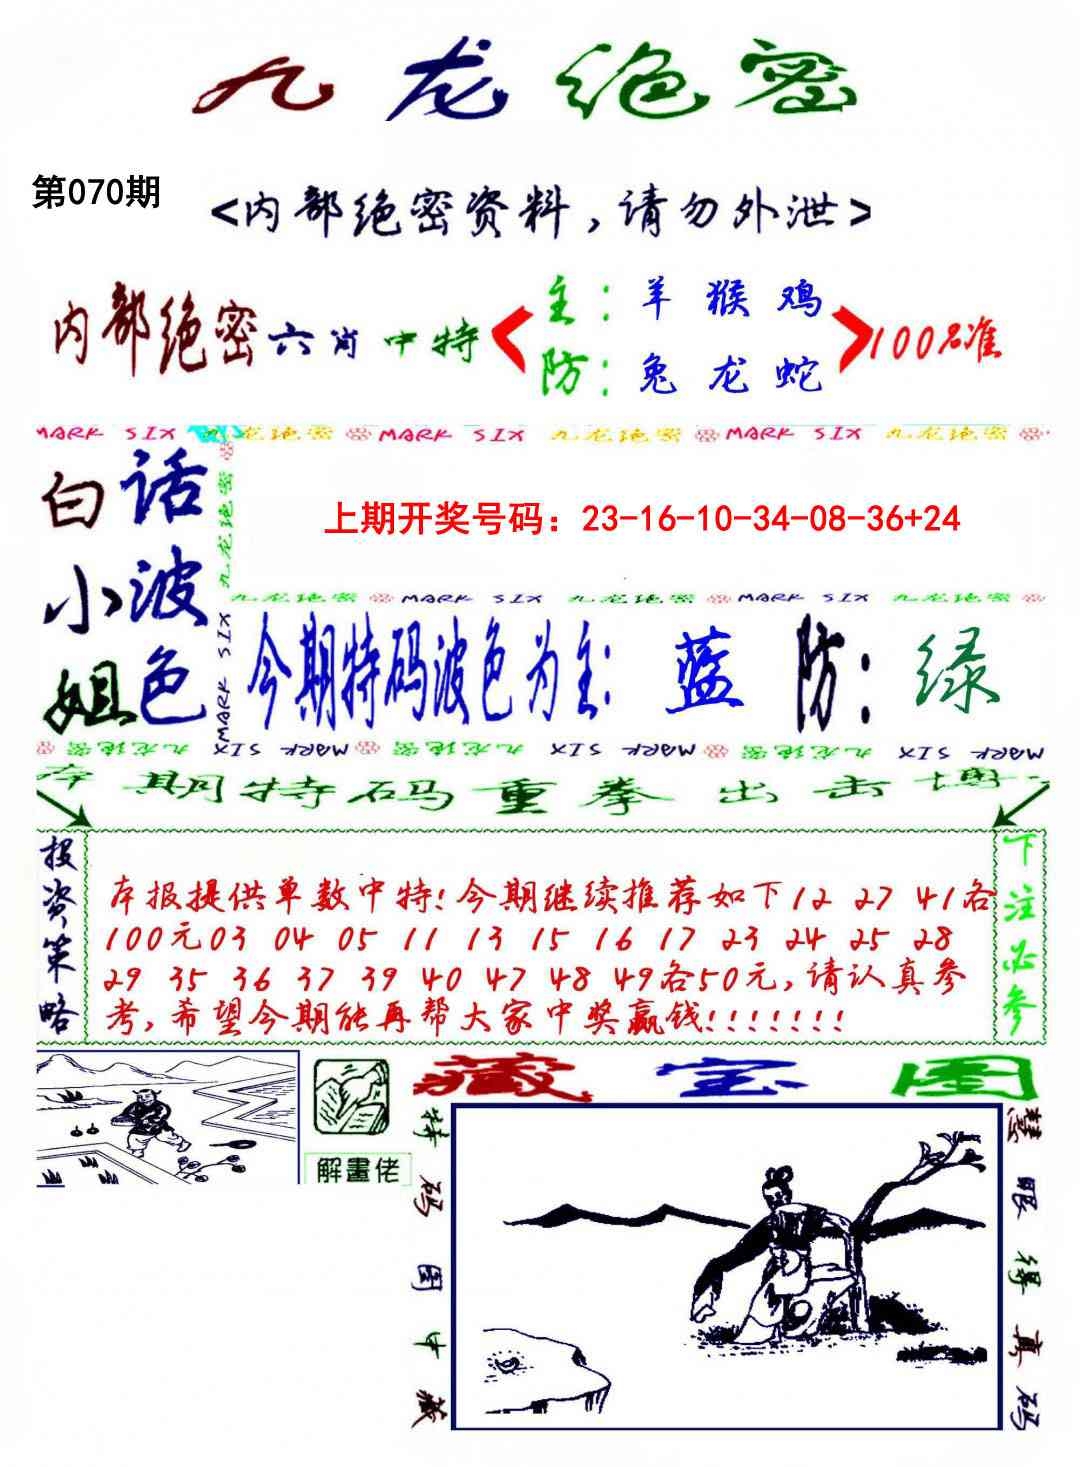 九龙绝密
第070期
<内部绝密资料，请勿外泄>
内部绝密六肖中特
主：羊 猴 鸡
防：兔 龙 蛇
100%准
MARK SIX 九龙绝密 MARK SIX 九龙绝密 MARK SIX 九龙绝密
白小姐
话波色
九龙绝密
MARK SIX
上期开奖号码：23-16-10-34-08-36+24
九龙绝密 MARK SIX 九龙绝密 MARK SIX 九龙绝密
今期特码波色为主：蓝 防：绿
九龙绝密 MARK SIX 九龙绝密 MARK SIX 九龙绝密 MARK SIX
本期特码重拳出击博
投资策略
本报提供单数中特!今期继续推荐如下12 27 41各
100元03 04 05 11 13 15 16 17 23 24 25 28
29 35 36 37 39 40 47 48 49各50元,请认真参
考,希望今期能再帮大家中奖赢钱!!!!!!!
下注必参
解畫佬
藏宝图
特码图中藏
慧眼得真码